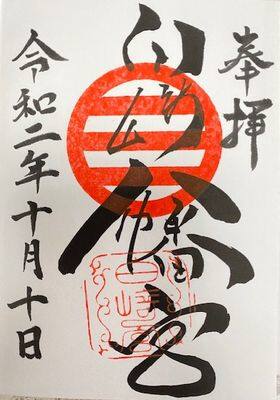 奉拝
白崎八幡宮
令和二年十月十日